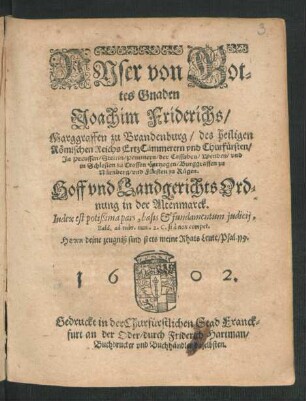 3.
VNser von Got-
tes Gnaden
Joachim Friderichs/
Marggraffen zu Brandenburg/ des heiligen
Römischen Reichs ErtzCämmereren vnd Churfürsten/
In Preussen/ Stettin/ Pommern der Cassuben/ Wenden/ vnd
in Schlesien zu Crossen Hertzogen/ Burggraffen zu
Nürnberg/ vnd Fürsten zu Rügen.
Hoff vnd Landgerichts Ord-
nung in der Altenmarck.
Iudex est potissima pars, basis & fundamentum judicij,
Herr deine zeugniß sind stets meine Rhats Leute/ Psal. 119.
1602.
Gedruckt in der Churfürstlichen Stad Franck-
furt an der Oder/ durch Friderich Hartman/
Buchdrucker vnd Buchhändler daselbsten.